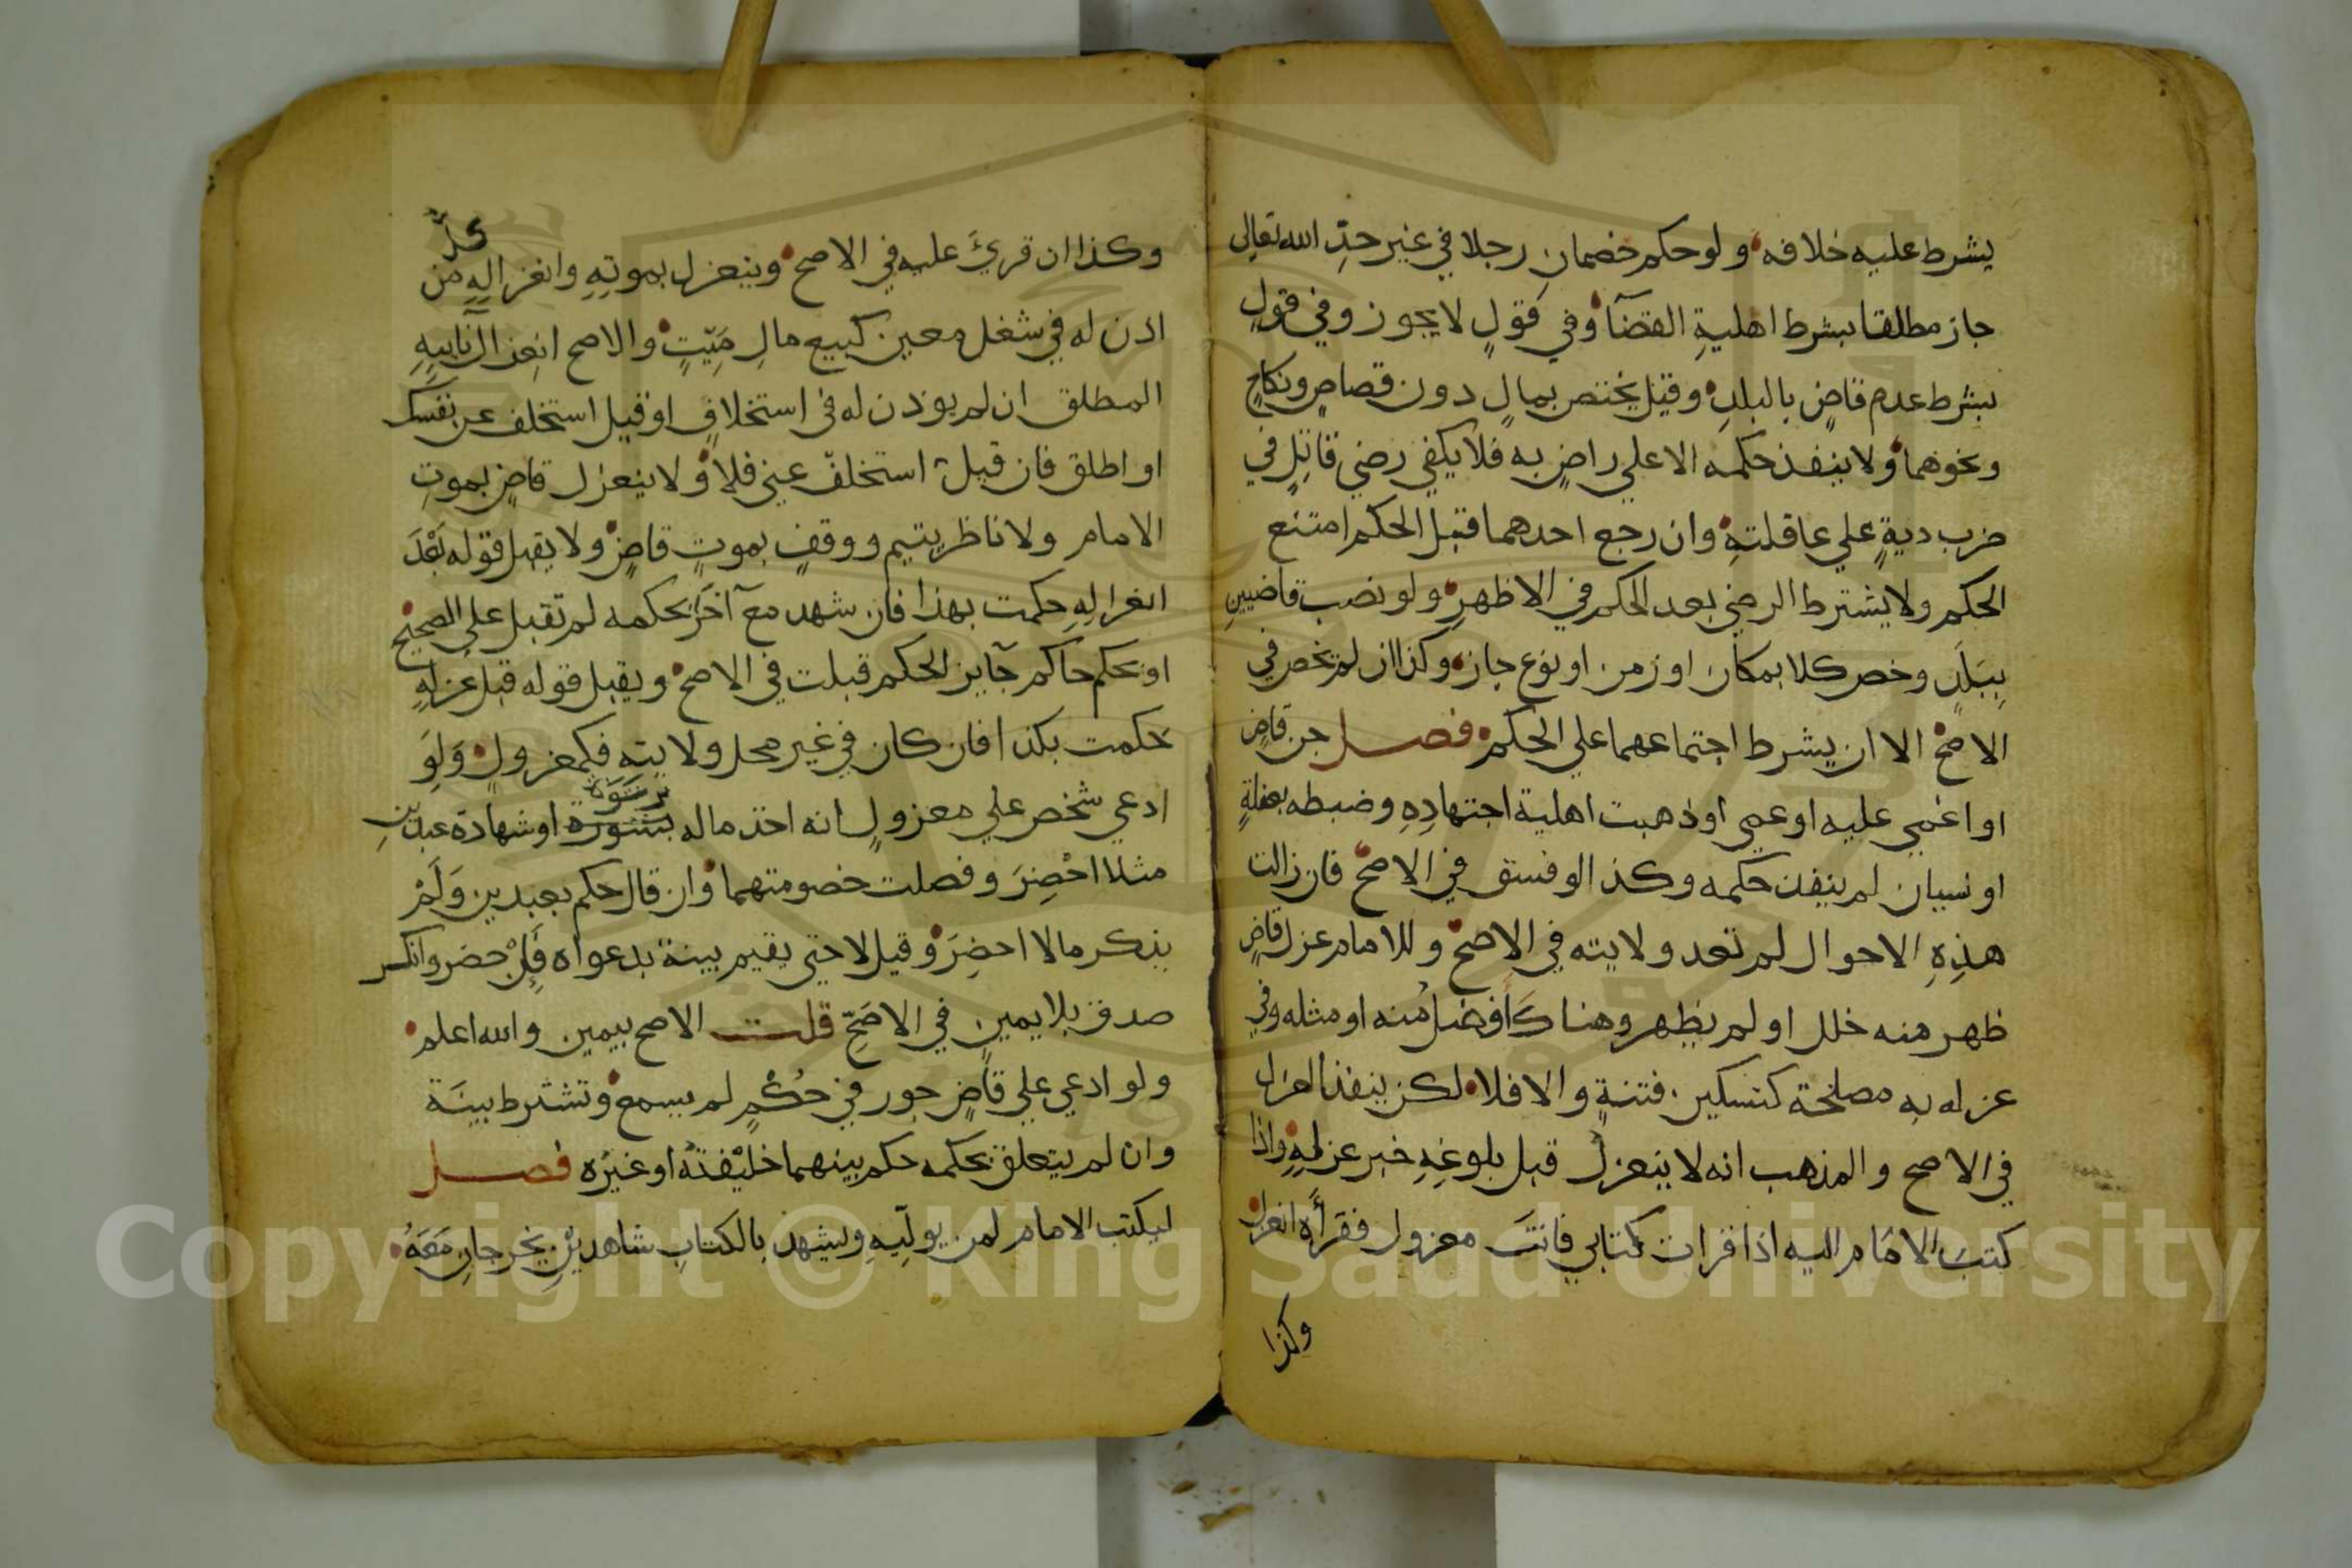 يشرط عليه خلافه ولو حكم خصمان رجلا في غير حدِّ الله تعالى
جاز مطلقا بشرط اهليةِ القضآء وفي قولٍ لا يجوز وفي قولٍ
بشرط عدم قاضٍ بالبلدِ وقيل يختص بمالٍ دون قصاصٍ ونكاحٍ
ونحوهما ولا ينفذ حكمه الا علي راضٍ به فلا يكفي رضي قاتلٍ في
ضرب ديةٍ علي عاقلتهِ وان رجع احدهما قبل الحكم امتنع
الحكم ولا يشترط الرضي بعد الحكم في الاظهرِ ولو نصب قاضيينِ
ببَلَدٍ وخص كلا بمكان او زمن او نوع جاز وكذا ان لم يخص في
الاصحّ الا ان يشرط اجتماعهما علي الحكم فصل جن قاضٍ
او اغمي عليه او عمي او ذهبت اهلية اجتهادِهِ وضبطه بغفلةٍ
او نسيان لم ينفذ حكمه وكذا لو فسق في الاصحّ فان زالت
هذِهِ الاحوال لم تعد ولايته في الاصحّ وللامام عزل قاضٍ
ظهر منه خلل او لم يظهر وهناك أفضلُ منه او مثله وفي
عزله به مصلحة كتسكين فتنةٍ والا فلا لكن ينفذ العزل
في الاصح والمذهب انه لا ينعزلُ قبل بلوغِهِ خبر عزلهِ واذا
كتبَ الامَام اليه اذا قرات كتابي فانتَ معزول فقرأَه انعزل
وكذا
وكذا ان قرئَ عليه في الاصح وينعزل بموتِهِ وانعزالِهِ من
كلُّ
اذن له في شغل معين كبيع مالِ مَيّتٍ والاصح انعزال نآيبِهِ
المطلق ان لم يوذن له في استخلافٍ او قيل استخلف عن نفسك
او اطلق فان قيل استخلفْ عني فلا ولا ينعزل قاضٍ بموتِ
الامام ولا ناظر يتيم ووقفٍ بموتِ قاضٍ ولا يقبل قوله بَعْدَ
انعزالِهِ حكمت بهذا فان شهد معَ آخَرَ بحكمه لم تقبل علي الصحيح
او بحكم حاكم جآيز الحكم قبلت في الاصح ويقبل قوله قبل عزلِهِ
حكمت بكذا فان كان في غير محل ولايتِهِ فكمعزولٍ وَلَوِ
ادعي شخص علي معزولٍ انه اخذ ماله برشوة او شهادة عبدَينِ
مثلا احْضِرَ وفصلت خصومتهما وان قال حكم بعبدين وَلَمْ
يذكر مالا احضِرَ وقيل لا حتي يقيم بينة بدعواه فَإنْ حضر وانكر
صدق بلا يمينٍ في الاصَحِّ قلت الاصح بيمين والله اعلم
ولو ادعي علي قاضٍ جور في حُكْمٍ لم يسمع وتشترط بينَة
وان لم يتعلق بحكمه حكم بينهما خليْفتُهُ او غيرُه فصل
ليكتب الامام لمن يولّيهِ ويشهدْ بالكتابِ شاهديْنِ يخرجانِ مَعَهُ
Copyright © King Saud University